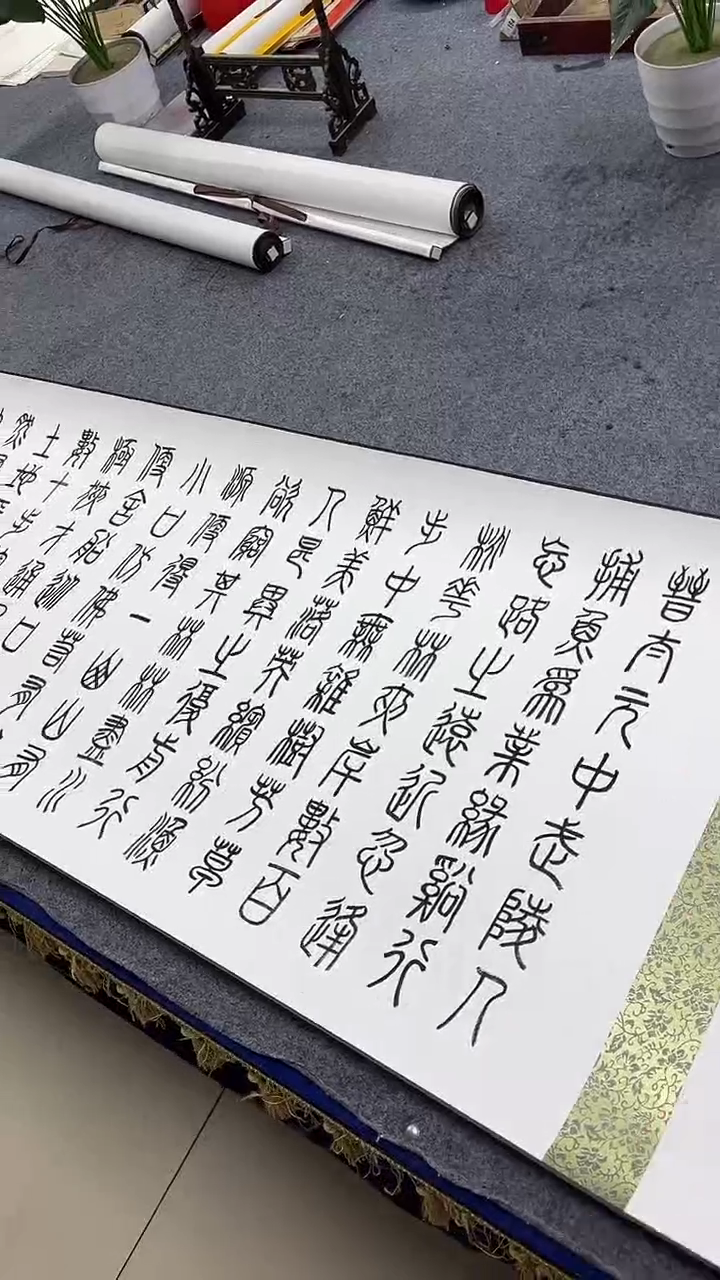 晉太元中武陵人
捕魚為業緣谿行
忘路之遠近忽逢
桃華林夾岸數百
步中無雜樹芳草
鮮美落英繽紛漁
人甚異之復前行
欲窮其林林盡水
源便得一山山有
小口仿佛若有
便舍船從口
極狹才通
數十步
土地
然